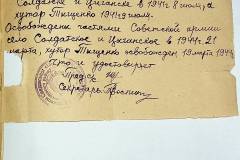 Солдатское и Цигинске в 1941г. 8 июля, а
хутор Тищенко 1941г. 9 июля.
Освобождены частями Советской армии
село Солдатское и Цигинское в 1944г. 21
марта, хутор Тищенко освобожден 19 марта 1944г.
Что и удостоверяет
Предс.
Секретарь